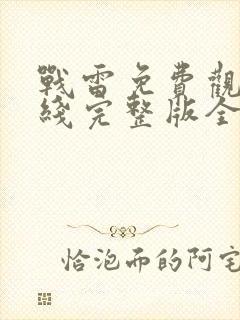 戰雷免費觀
綫完整版全
恰泡而的阿宅